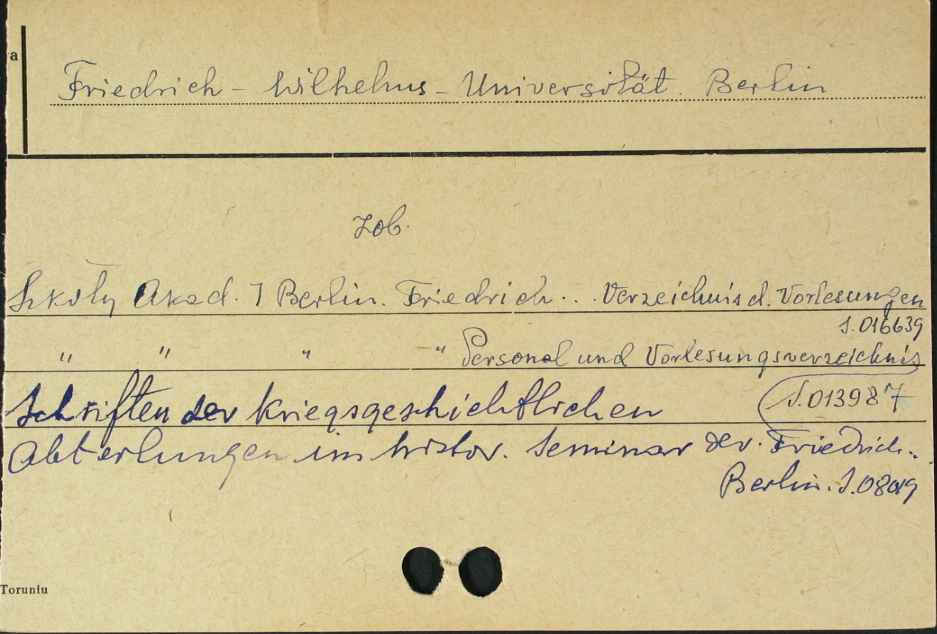 a
Friedrich - Wilhelms - Universität. Berlin
zob.
Szkoły Akad. 7 Berlin. Friedrich... Verzeichnis d. Vorlesungen
S.016639
" " " " Personal und Vorlesungsverzeichnis
S.013987
Schriften der kriegsgeschichtlichen
Abteilungen im histor. Seminar der. Friedrich..
Berlin. S.08019
Toruniu